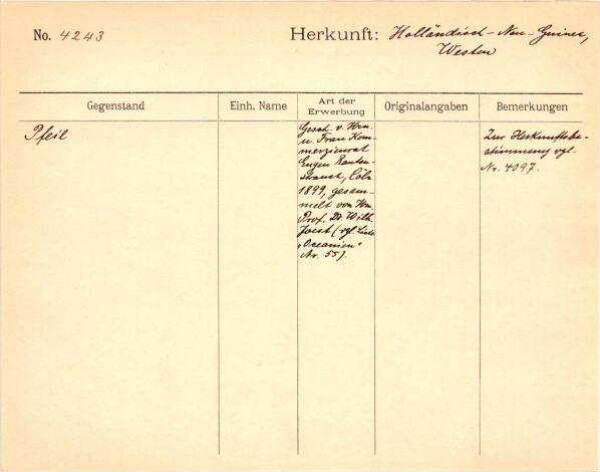 No. 4243
Herkunft: Holländisch-Neu-Guinea,
Westen
Gegenstand
Einh. Name
Art der
Erwerbung
Originalangaben
Bemerkungen
Pfeil
Gesch. v. Hrn.
u. Frau Kom-
merzienrat
Eugen Rauten-
strauch, Cöln
1899, gesam-
melt von Hn.
Prof. Dr. Wilh.
Joest (vgl. Liste
"Oceanien"
Nr. 55).
Zur Herkunftsbe-
stimmung vgl.
Nr. 4097.